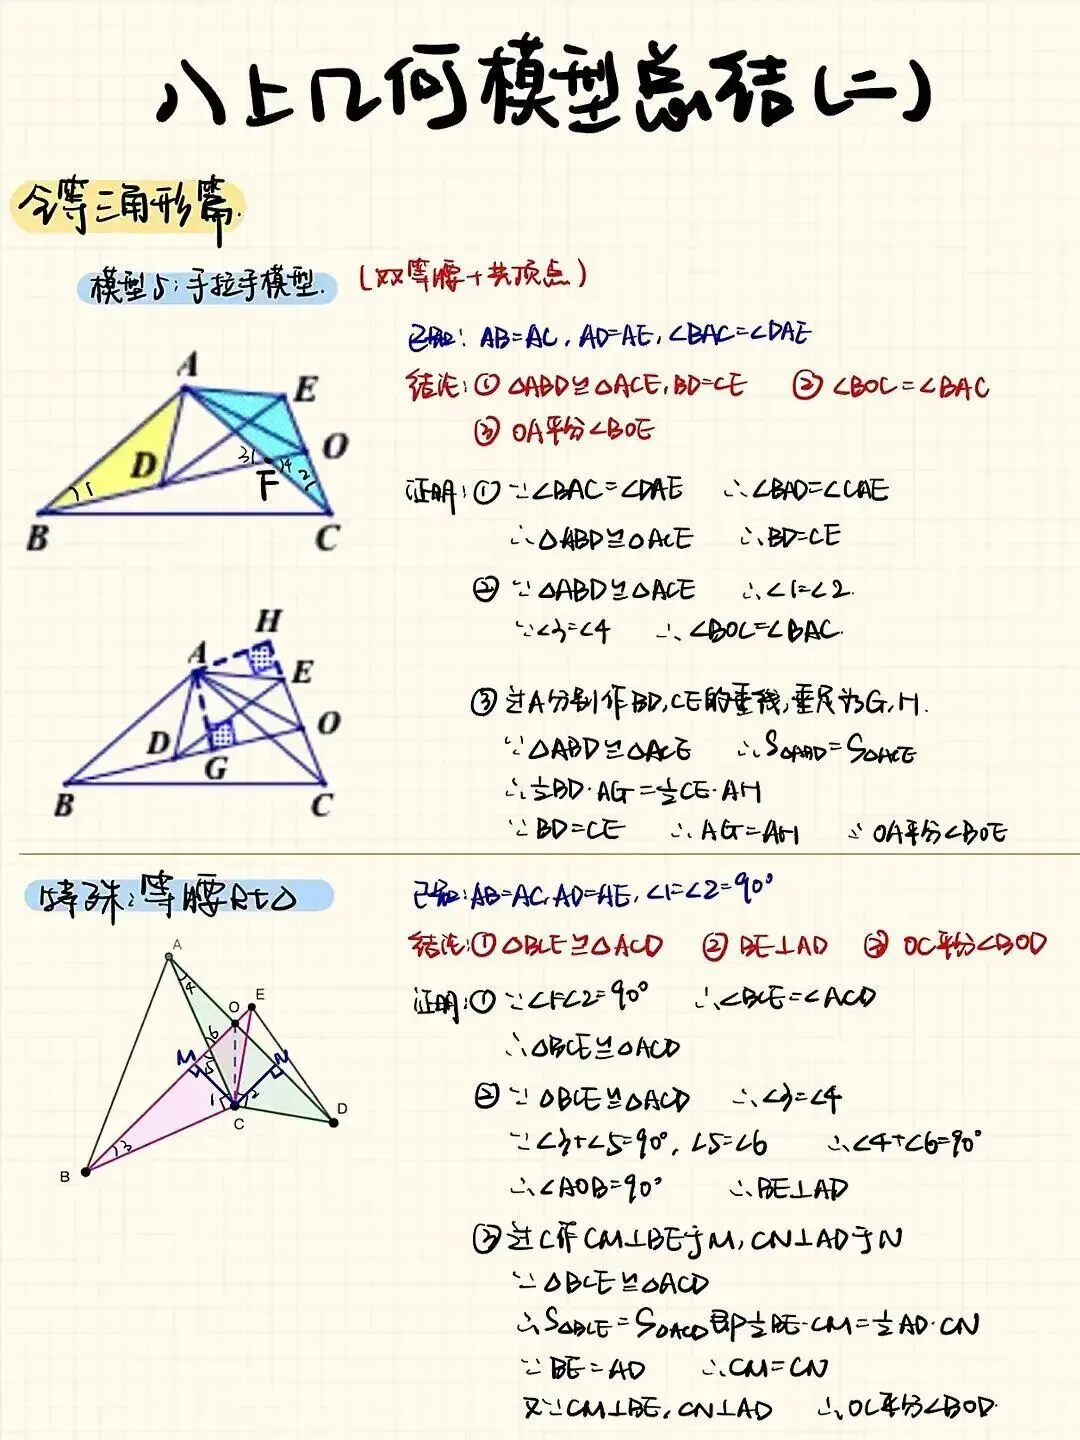 八上几何模型总结(二)
全等三角形篇.
模型5:手拉手模型.
(双等腰+共顶点)
已知: AB=AC, AD=AE, ∠BAC=∠DAE
结论:① △ABD≌△ACE, BD=CE ② ∠BOC=∠BAC
③ OA平分∠BOE
A
E
D
O
B
C
F
1
2
3
4
证明:① ∵∠BAC=∠DAE ∴∠BAD=∠CAE
∴△ABD≌△ACE ∴BD=CE
② ∵△ABD≌△ACE ∴∠1=∠2.
∵∠3=∠4 ∴∠BOC=∠BAC.
③ 过A分别作BD,CE的垂线,垂足为G,H.
∵△ABD≌△ACE ∴S△ABD=S△ACE
∴½BD·AG=½CE·AH
∵BD=CE ∴AG=AH ∴OA平分∠BOE
H
A
E
D
G
O
B
C
特殊:等腰Rt△
已知:AB=AC,AD=AE,∠1=∠2=90°
结论:① △BCE≌△ACD ② BE⊥AD ③ OC平分∠BOD
证明:① ∵∠1=∠2=90° ∴∠BCE=∠ACD
∴△BCE≌△ACD
② ∵△BCE≌△ACD ∴∠3=∠4
∵∠3+∠5=90°, ∠5=∠6 ∴∠4+∠6=90°
∴∠AOB=90° ∴BE⊥AD
③ 过C作CM⊥BE于M, CN⊥AD于N
∵△BCE≌△ACD
∴S△BCE=S△ACD即½BE·CM=½AD·CN
∵BE=AD ∴CM=CN
又∵CM⊥BE, CN⊥AD ∴OC平分∠BOD.
A
4
O
E
6
M
5
N
1
2
C
D
3
B